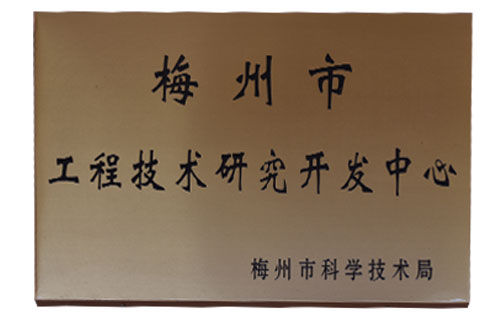 梅州市
工程技术研究开发中心
梅州市科学技术局